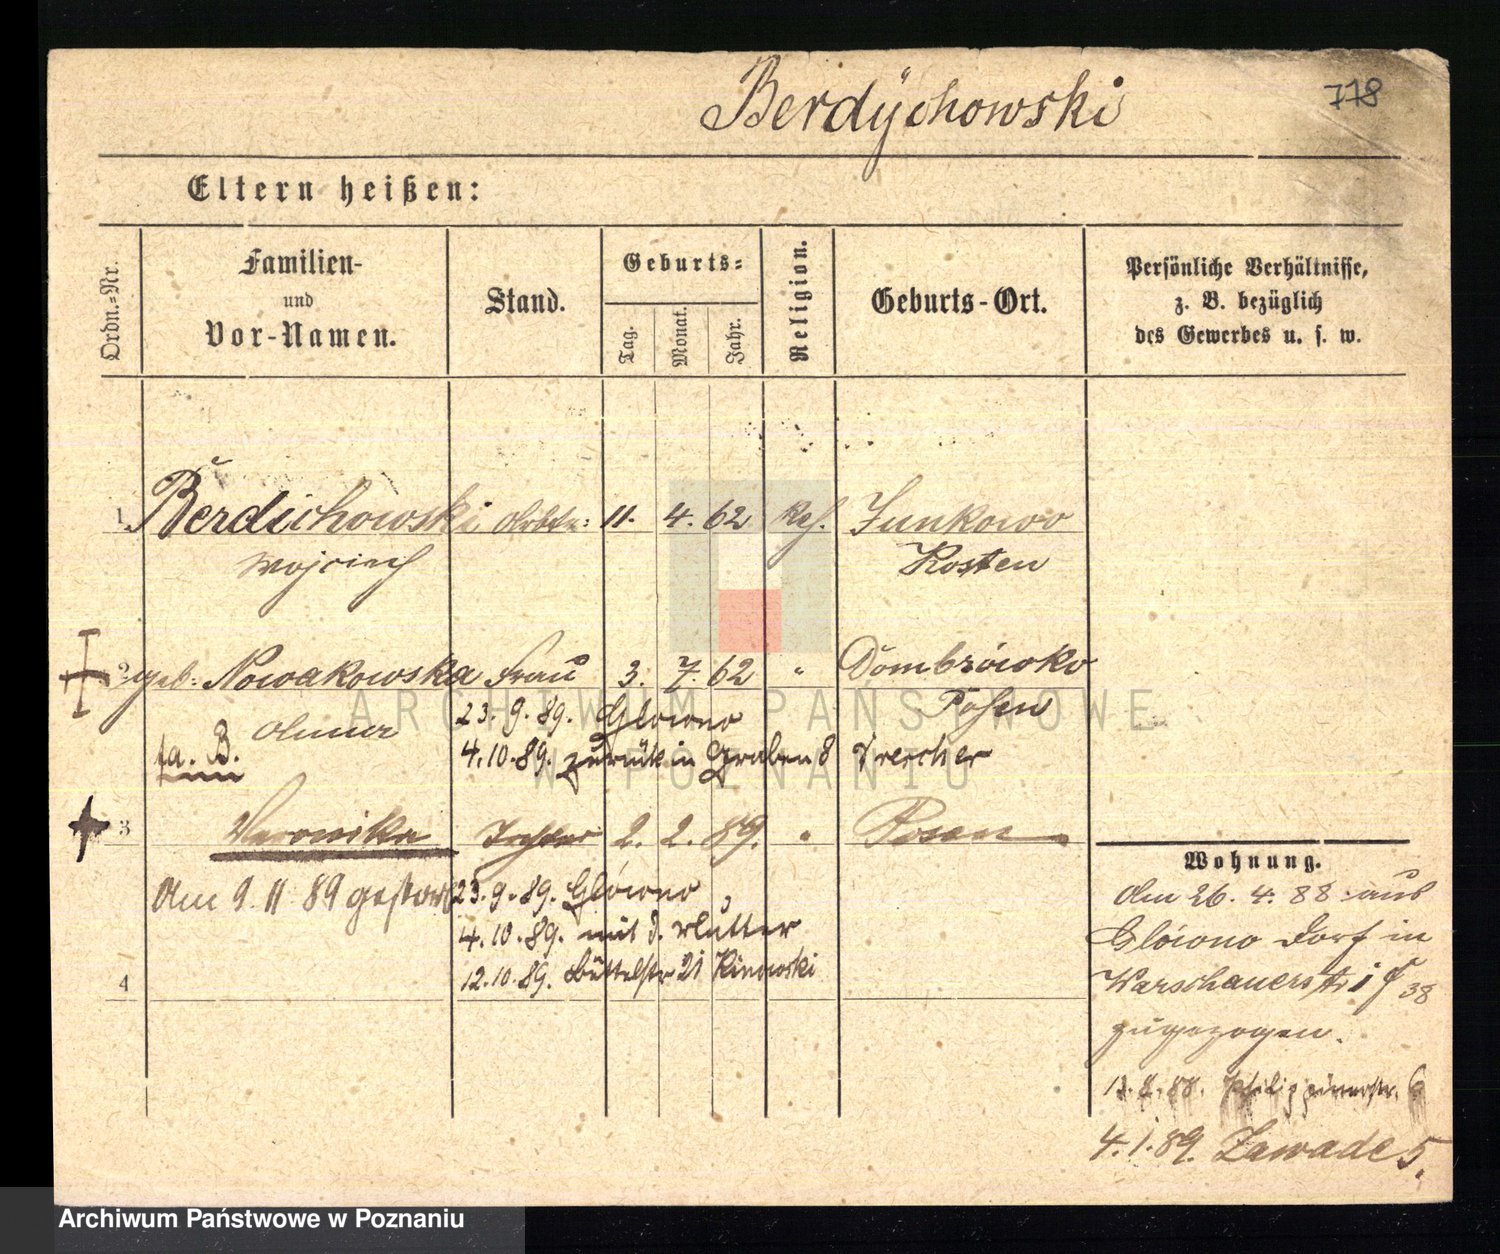 Berdychowski
778
Eltern heißen:
Ordn.-Nr.
Familien-
und
Vor-Namen.
Stand.
Geburts-
Tag.
Monat.
Jahr.
Religion.
Geburts-Ort.
Persönliche Verhältnisse,
z. B. bezüglich
des Gewerbes u. s. w.
1 Berdichowski 11. 4. 62 Junkowo
Wojciech Kosten
2 geb. Nowakowska Frau 3. 7. 62 "
Posen
23. 9. 89. Glówno
fa. B.
4. 10. 89. zurück in Graben 8
3 Veronika Tochter 2. 2. 89. " Posen
Am 9. 11 89 gestorb
23. 9. 89. Glówno
4. 10. 89. mit d. Mutter
12. 10. 89. Büttelstr 21
4
Wohnung.
Am 26. 4. 88 aus
Glówno Dorf in
Warschauerstr 38
zugezogen.
4. 1. 89. Zawade 5.
ARCHIWUM PAŃSTWOWE
W POZNANIU
Archiwum Państwowe w Poznaniu